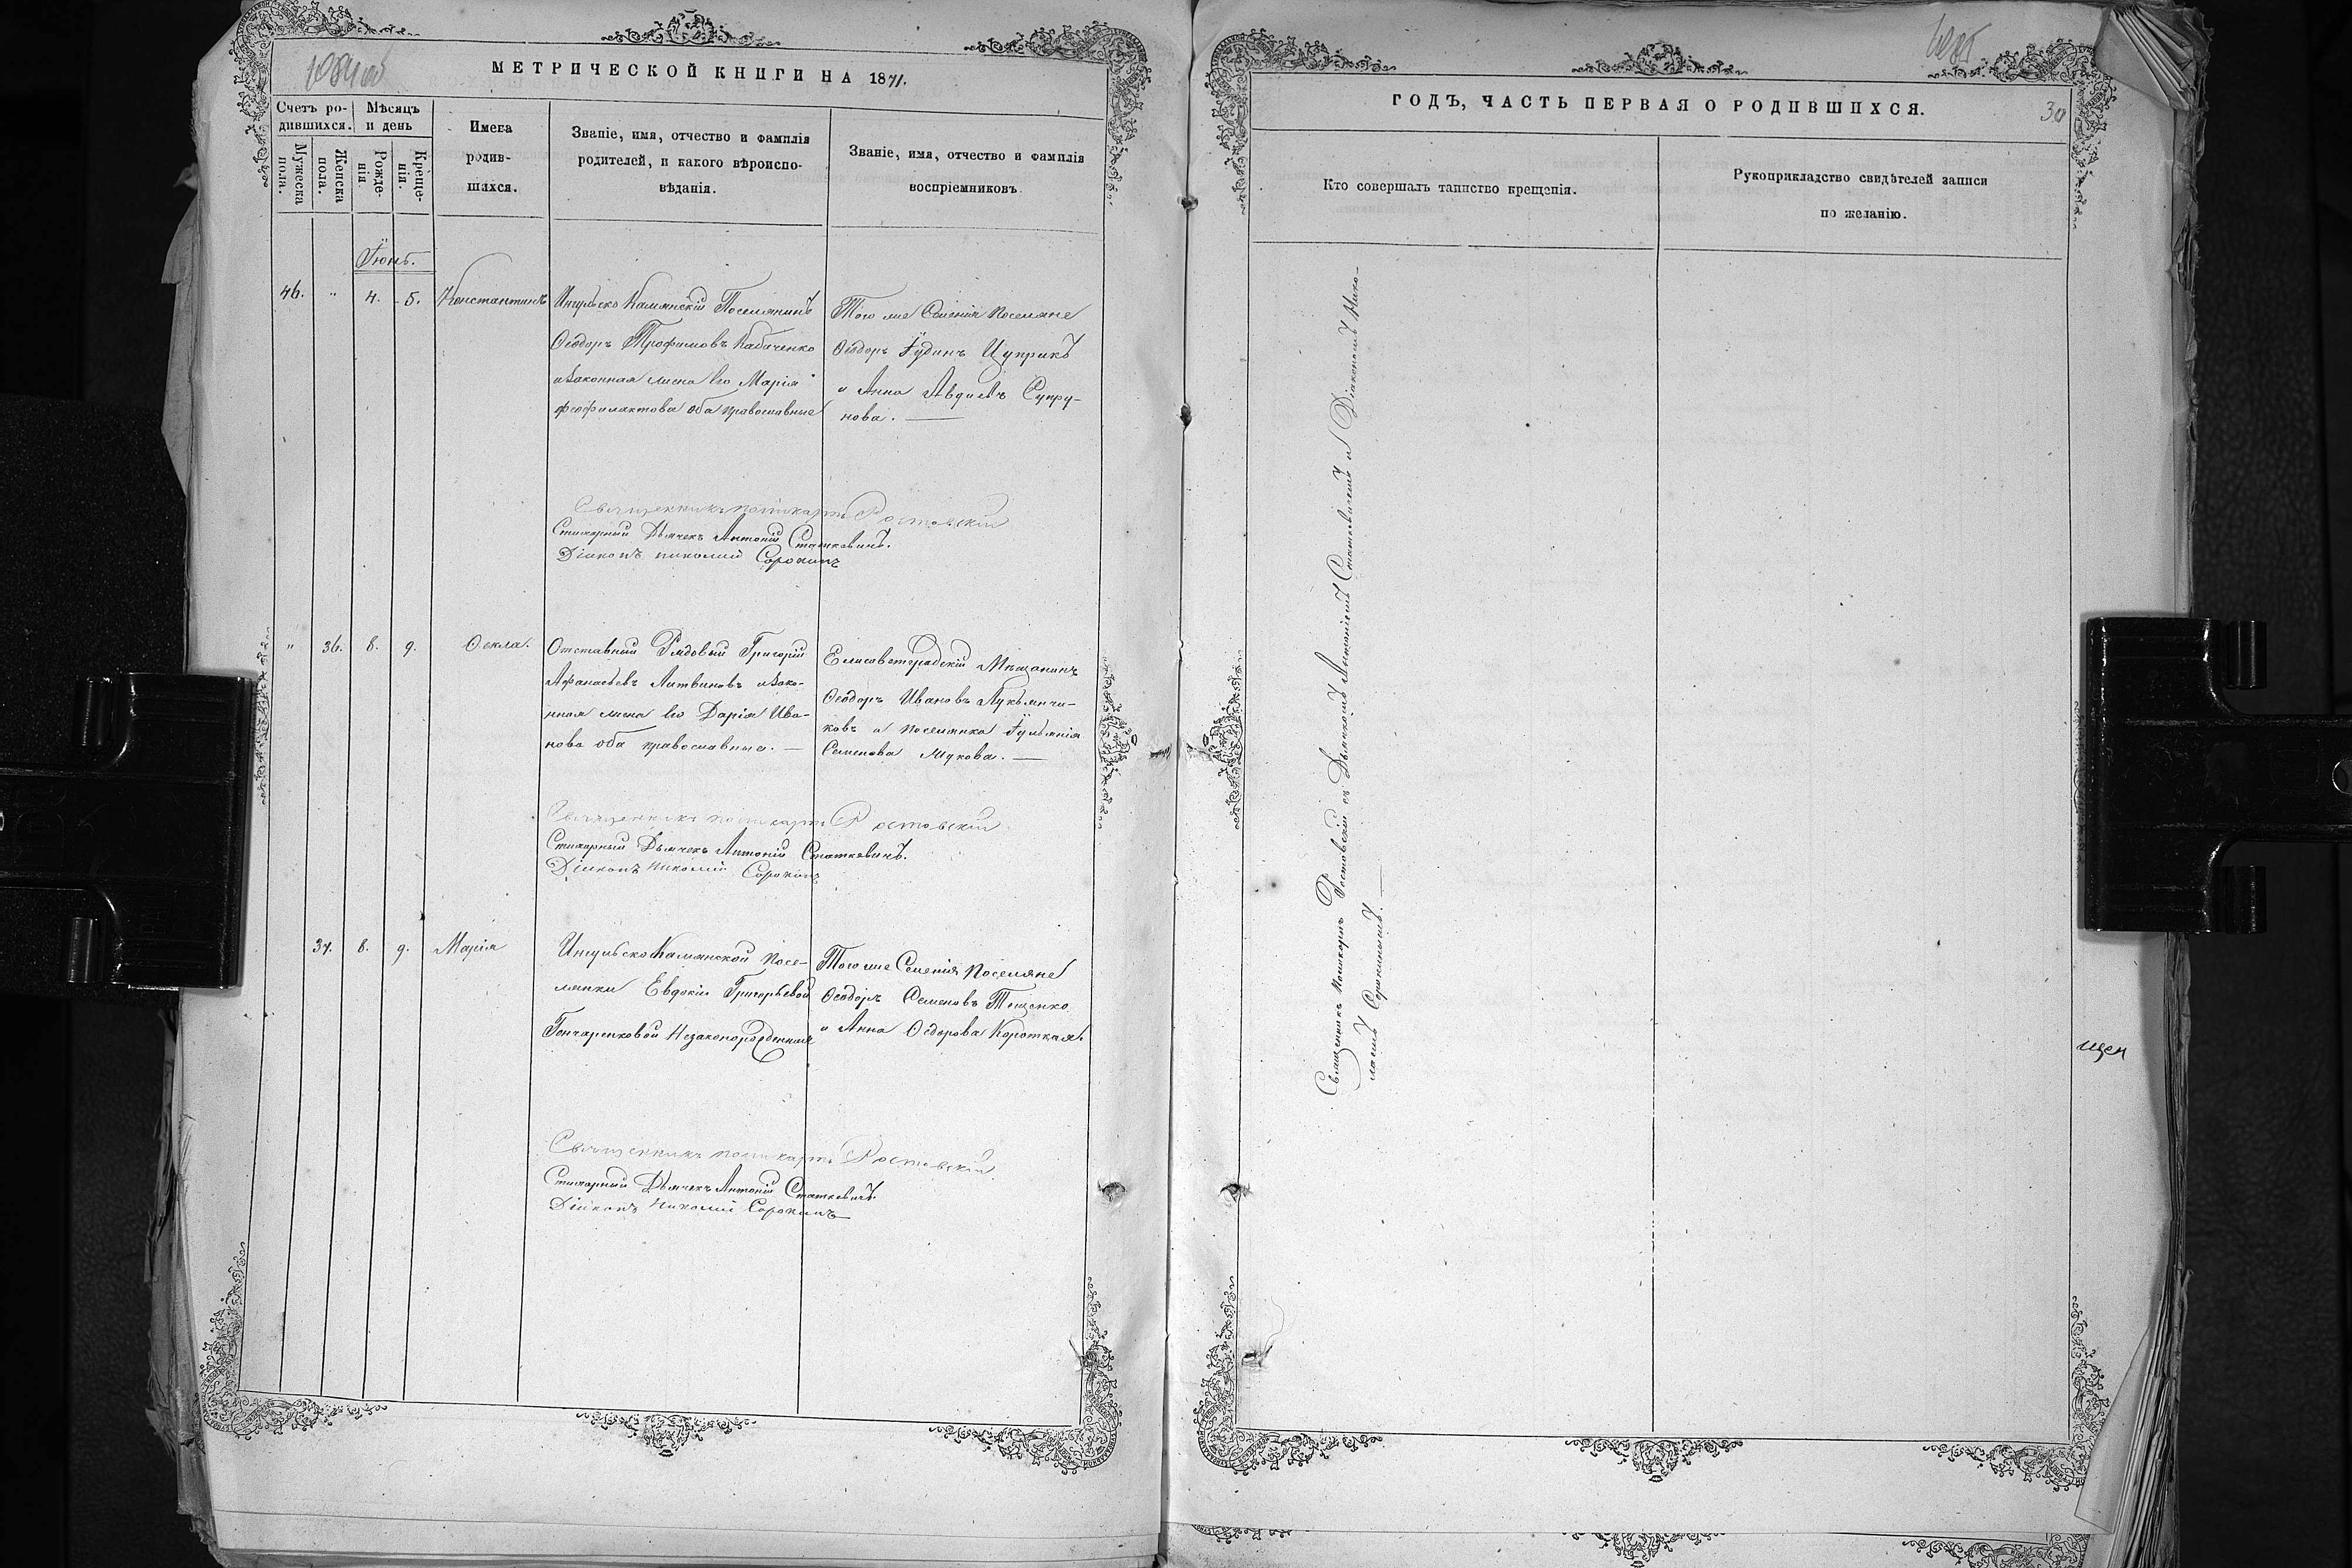 МЕТРИЧЕСКОЙ КНИГИ НА 1871.
Счетъ ро-
дившихся.
Мѣсяцъ
и день
Мужеска
пола.
Женска
пола.
Рожде-
нія
Креще-
нія.
Имена
родив-
шихся.
Званіе, имя, отчество и фамилія
родителей, и какого вѣроиспо-
вѣданія.
Званіе, имя, отчество и фамилія
воспріемниковъ
Іюнь.
46. " 4. 5. Константинъ
Ингульско Камянскій Поселянинъ
Ѳеодоръ Трофимовъ Кабаченко
и законная жена его Марія
Феофилактова оба православные
Того же Селенія поселяне
Ѳеодоръ Іудинъ Цуприкъ
и Анна Авдіевъ Супру-
нова.
Священникъ Поликарпъ Ростовскій
Стихарный Дьячекъ Антоній Статкевичъ.
Діаконъ Николай Сорокинъ
" 36. 8. 9. Ѳекла.
Отставный Рядовый Григорій
Афанасьевъ Литвиновъ и зако-
нная жена его Дарія Ива-
нова оба православные.
Елисаветградскій Мѣщанинъ
Ѳеодоръ Ивановъ Лукьянчи-
ковъ и поселянка Іульянія
Семенова
Священникъ Поликарпъ Ростовскій
Стихарный Дьячекъ Антоній Статкевичъ.
Діаконъ Николай Сорокинъ
37. 8. 9. Марія
Ингульско Камянской Посе-
лянки Евдокіи Григорьевой
Гончаренковой Незаконорожденная
Того же Селенія Поселяне
Ѳеодоръ Семеновъ Тещенко
и Анна Ѳедорова Короткая.
Священникъ Поликарпъ Ростовскій
Стихарный Дьячекъ Антоній Статкевичъ
Діаконъ Николай Сорокинъ
ГОДЪ, ЧАСТЬ ПЕРВАЯ О РОДИВШИХСЯ.
30
Кто совершалъ таинство крещенія.
Рукоприкладство свидѣтелей записи
по желанію.
Священникъ Поликарпъ Ростовскій съ Дьячкомъ Антоніемъ Статкевичемъ и Діакономъ Нико-
лаемъ Сорокинымъ.